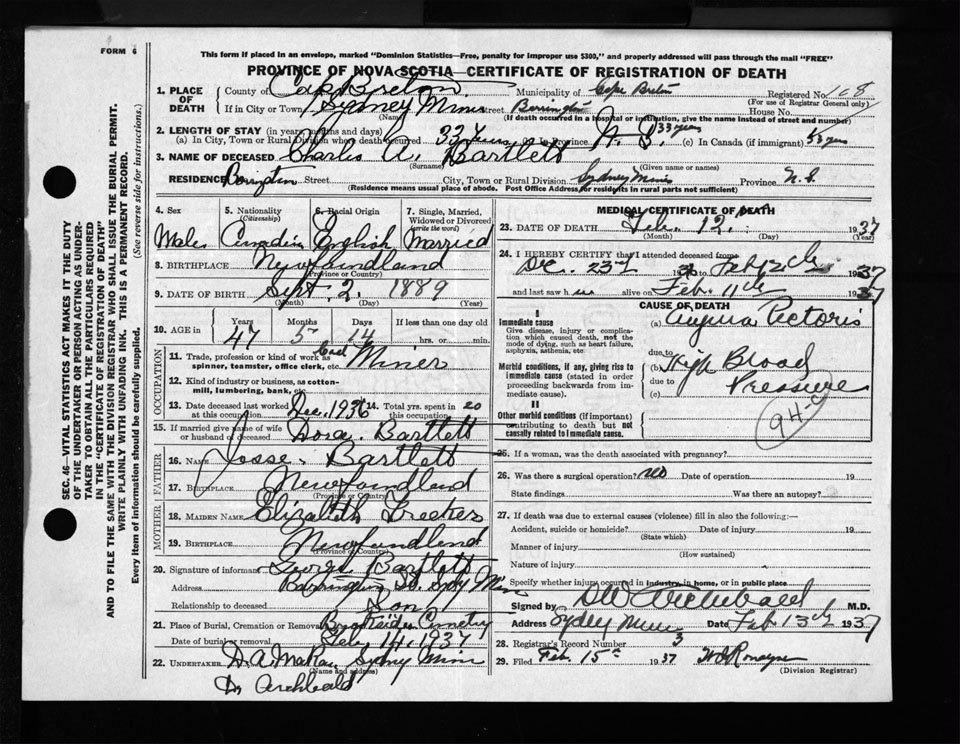 FORM 6
This form if placed in an envelope, marked "Dominion Statistics—Free, penalty for improper use $300," and properly addressed will pass through the mail "FREE"
PROVINCE OF NOVA SCOTIA—CERTIFICATE OF REGISTRATION OF DEATH
SEC. 46—VITAL STATISTICS ACT MAKES IT THE DUTY
OF THE UNDERTAKER OR PERSON ACTING AS UNDER-
TAKER TO OBTAIN ALL THE PARTICULARS REQUIRED
IN THE "CERTIFICATE OF REGISTRATION OF DEATH"
AND TO FILE THE SAME WITH THE DIVISION REGISTRAR WHO SHALL ISSUE THE BURIAL PERMIT.
WRITE PLAINLY WITH UNFADING INK. THIS IS A PERMANENT RECORD.
Every item of information should be carefully supplied. (See reverse side for instructions.)
1. PLACE OF DEATH County of Cape Breton Municipality of Cape Breton Registered No. 168
(For use of Registrar General only)
If in City or Town Sydney Mines Street Barrington House No.
(Name) (If death occurred in a hospital or institution, give the name instead of street and number)
2. LENGTH OF STAY (in years, months and days)
(a) In City, Town or Rural Division where death occurred 33 Yrs (b) In Province N. S. 33 years (c) In Canada (if immigrant) 33 yrs
3. NAME OF DECEASED Charles A. Bartlett
(Surname) (Given name or names)
RESIDENCE Barington Street City, Town or Rural Division Sydney Mines Province N. S.
(Residence means usual place of abode. Post Office Address for residents in rural parts not sufficient)
4. Sex 5. Nationality (Citizenship) 6. Racial Origin 7. Single, Married, Widowed or Divorced (write the word)
Male Canadian English Married
8. BIRTHPLACE Newfoundland
(Province or Country)
9. DATE OF BIRTH Sept. 2, 1889
(Month) (Day) (Year)
10. AGE in Years Months Days If less than one day old
47 5 hrs. or min.
OCCUPATION
11. Trade, profession or kind of work as spinner, teamster, office clerk, etc. Coal Miner
12. Kind of industry or business, as cotton-mill, lumbering, bank, etc.
13. Date deceased last worked at this occupation Dec. 1936 14. Total yrs. spent in this occupation 20
15. If married give name of wife or husband of deceased Dora. Bartlett
FATHER
16. NAME Josse. Bartlett
17. BIRTHPLACE Newfoundland
(Province or Country)
MOTHER
18. MAIDEN NAME Elizabeth
19. BIRTHPLACE Newfoundland
(Province or Country)
20. Signature of informant George Bartlett
Address Barrington St. Sydy Mines
Relationship to deceased Son
21. Place of Burial, Cremation or Removal Cemetry
Date of burial or removal Feb. 14, 1937
22. UNDERTAKER D. A. Sydney Mines
(Name and address)
Dr Archbald
MEDICAL CERTIFICATE OF DEATH
23. DATE OF DEATH Feb. 12 1937
(Month) (Day) (Year)
24. I HEREBY CERTIFY that I attended deceased from
Dec. 23 36 to Feb 12th 1937
and last saw h im alive on Feb 11th 1937
CAUSE OF DEATH
I
Immediate cause
Give disease, injury or complication which caused death, not the mode of dying, such as heart failure, asphyxia, asthenia, etc
(a) Angina Pectoris
due to
Morbid conditions, if any, giving rise to immediate cause (stated in order proceeding backwards from immediate cause).
(b) High Blood
due to Pressure
(c)
94-
II
Other morbid conditions (if important) contributing to death but not causally related to immediate cause.
25. If a woman, was the death associated with pregnancy?
26. Was there a surgical operation? no Date of operation 19
State findings Was there an autopsy?
27. If death was due to external causes (violence) fill in also the following:—
Accident, suicide or homicide? Date of injury 19
(State which)
Manner of injury
(How sustained)
Nature of injury
Specify whether injury occurred in industry, in home, or in public place
Signed by DW Archibald M.D.
Address Sydney Mines Date Feb 13th 1937
28. Registrar's Record Number 3
29. Filed Feb. 15th 1937
(Division Registrar)